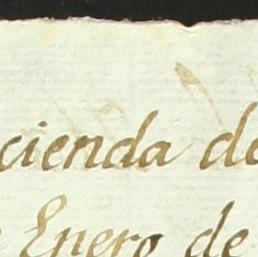 cienda de
Enero de